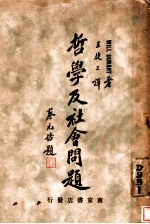 WILL DURANT 著
王捷三譯
哲學及社會問題
蔡元培題
南京書店發行